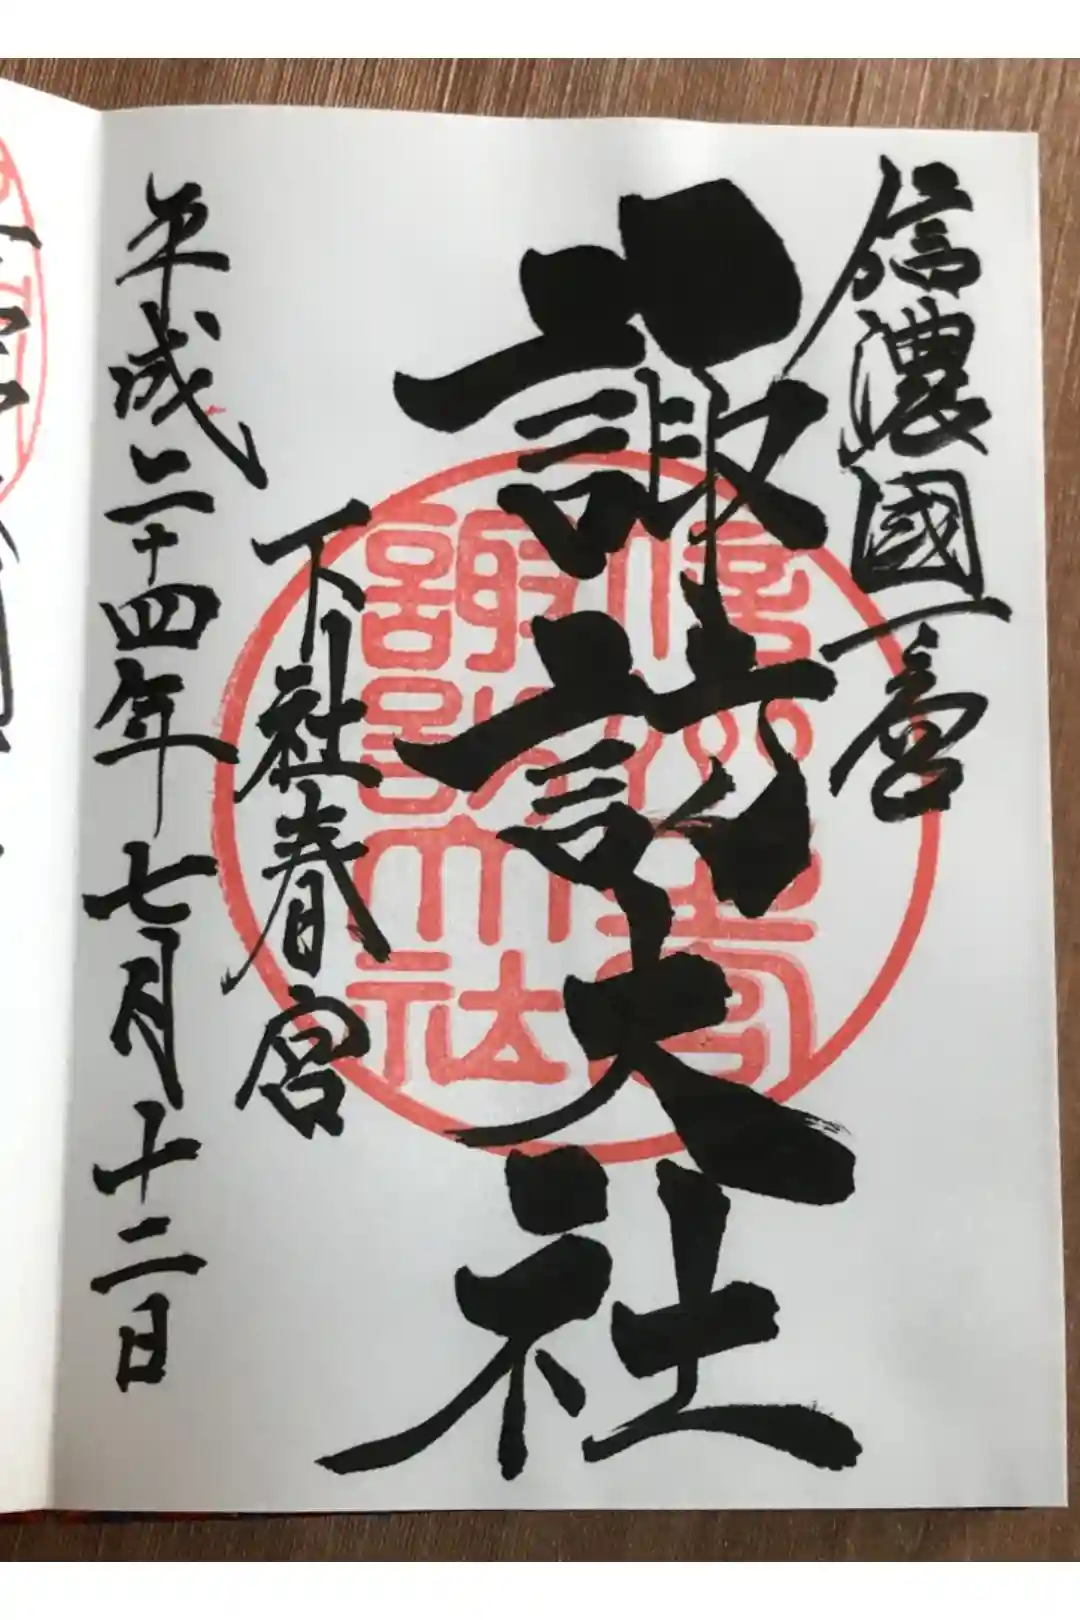 信濃國一之宮
諏訪大社
下社春宮
平成二十四年七月十二日
諏訪大社